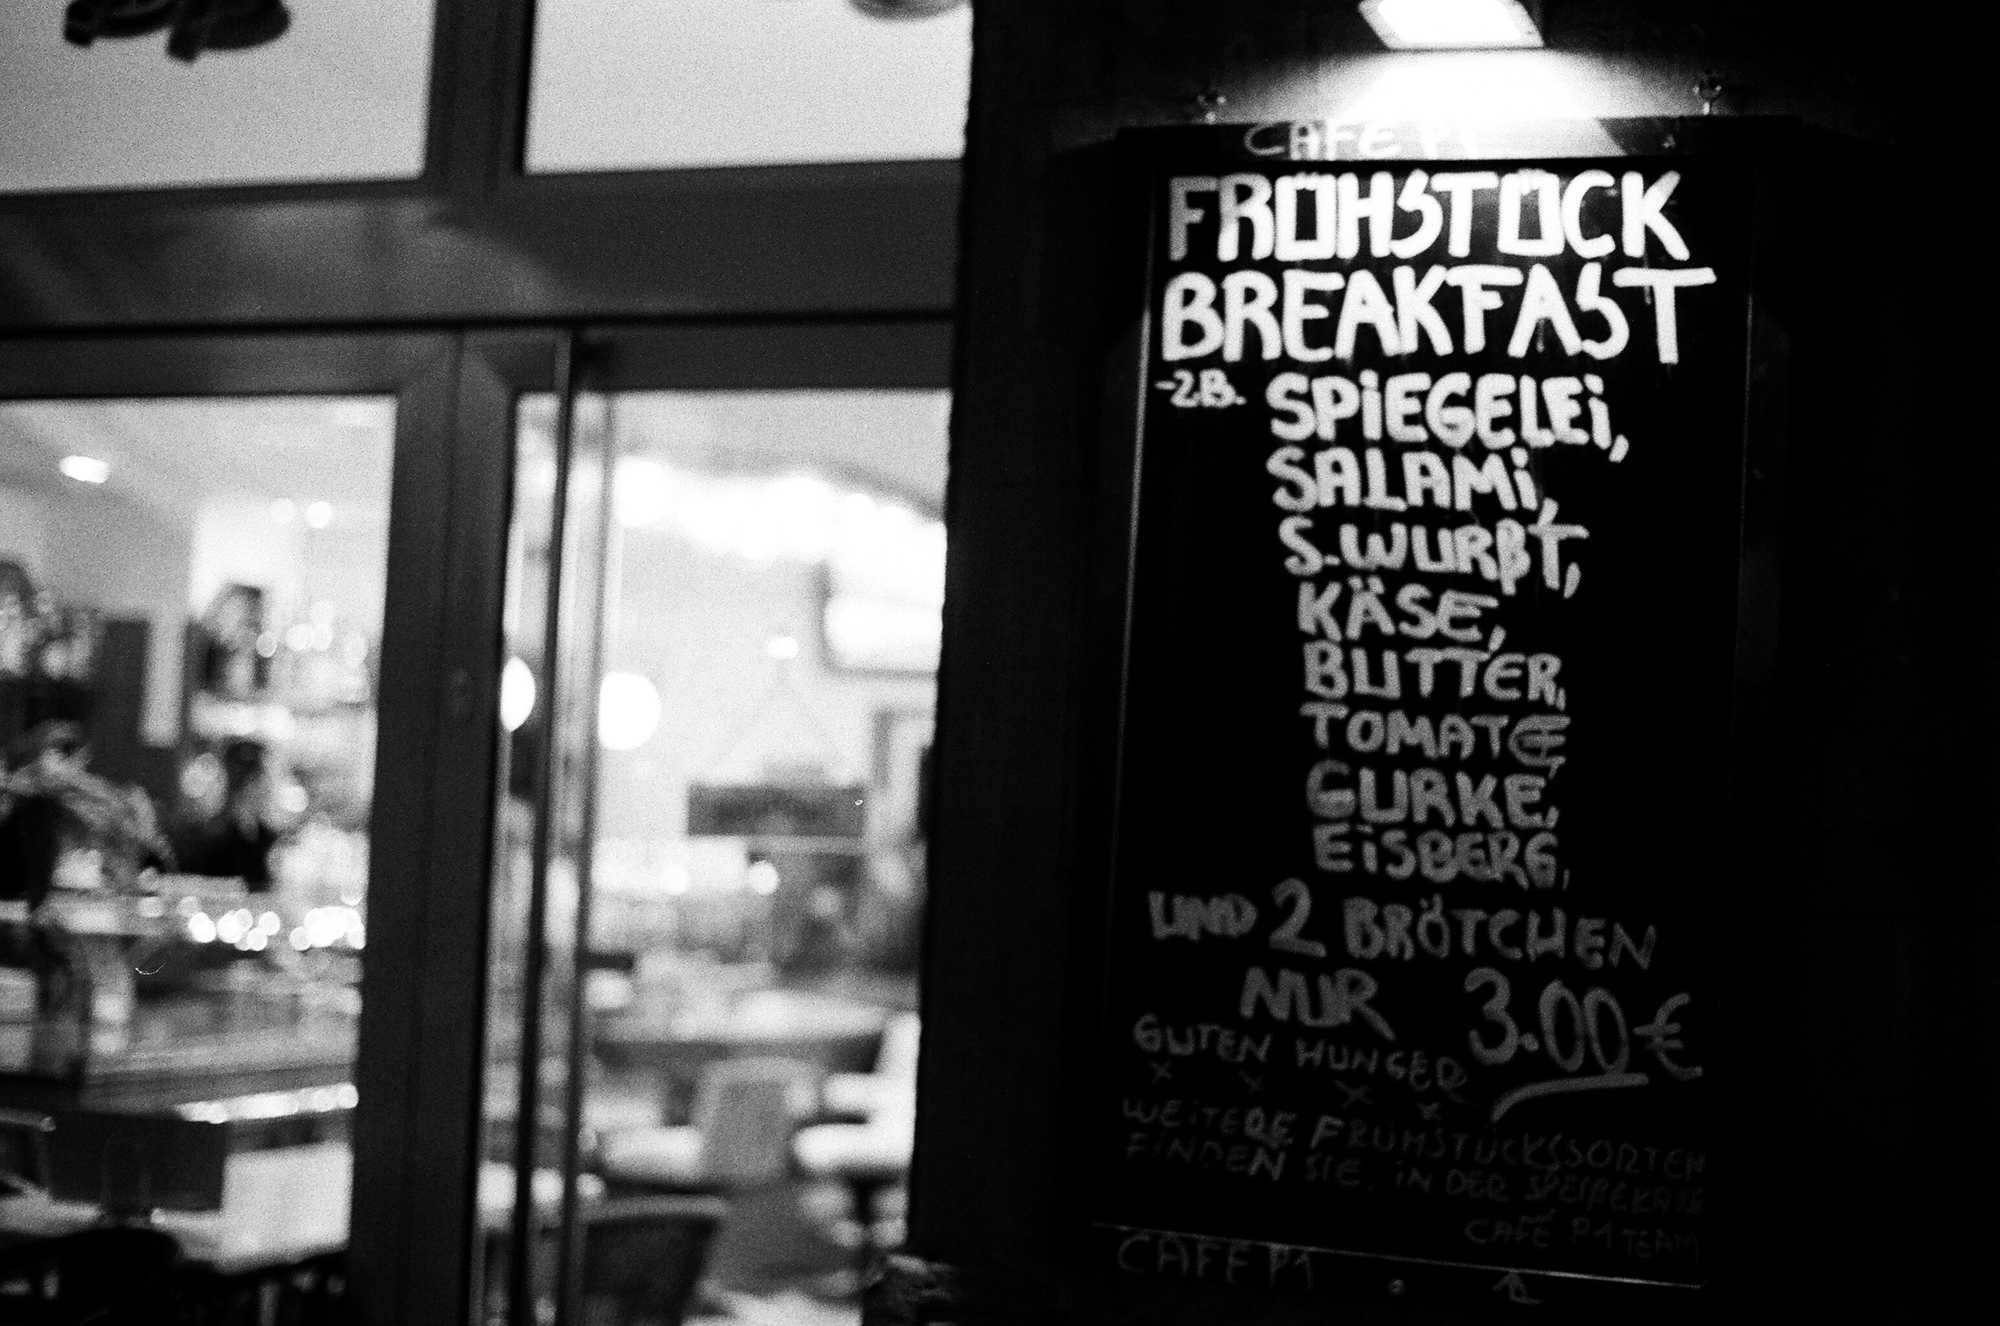 CAFE P1
FRÜHSTÜCK
BREAKFAST
-Z.B. SPiEGELEi,
SALAMi,
S.WURßT,
KÄSE,
BUTTER,
TOMATE,
GURKE,
EiSBERG,
UND 2 BRÖTCHEN
NUR 3.00€
GUTEN HUNGER
x x x x
WEiTERE FRÜHSTÜCKSSORTEN
FiNDEN SIE, iN DER
CAFÉ P1 TEAM
CAFÉ P1